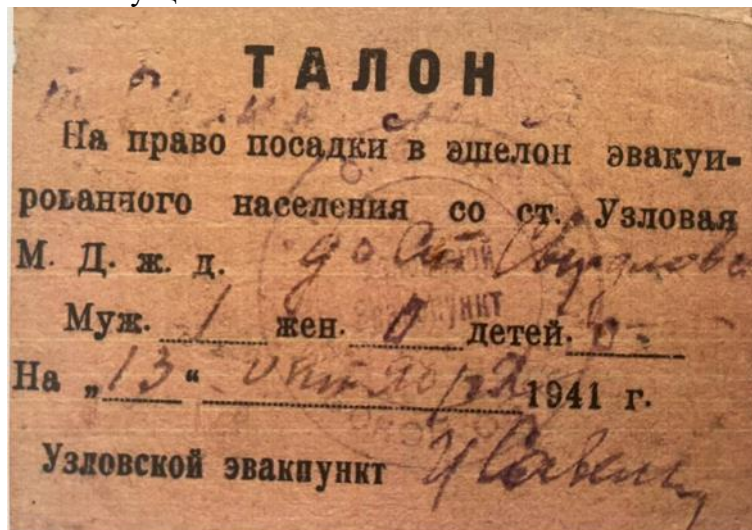 ТАЛОН
На право посадки в эшелон эвакуи-
рованного населения со ст. Узловая
М. Д. ж. д. до ст Свердловск
Муж. 1 жен. 0 детей. 0
На „13“ октября 1941 г.
Узловской эвакпункт